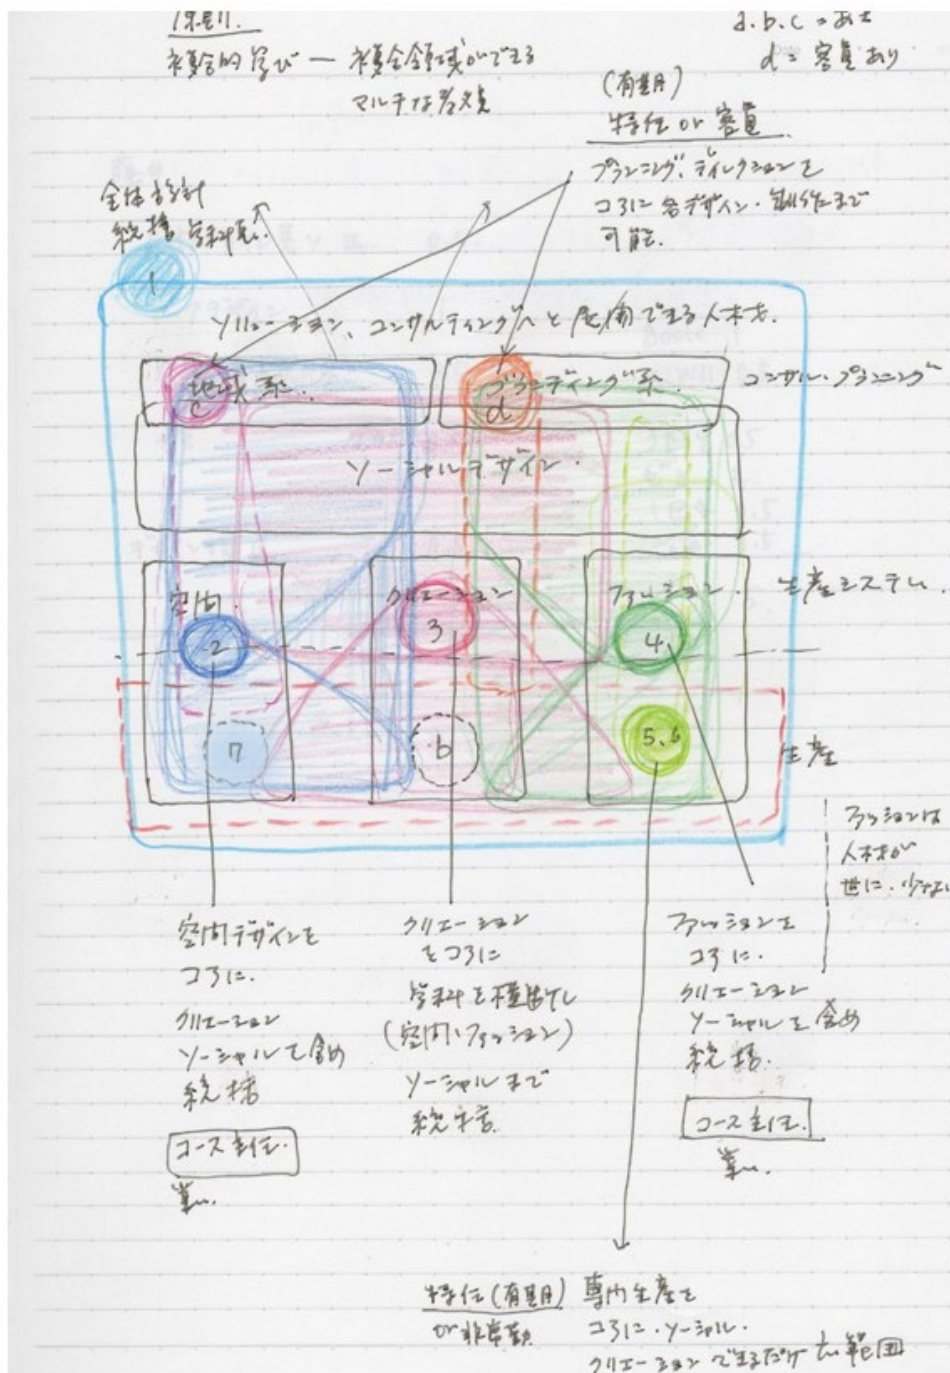 複合的学び — 複合領域ができる
マルチな
a.b.c
d = 客員あり
(有期)
特任 or 客員
プランニング、ディレクションを
コアに各デザイン・制作まで
可能.
全体設計
統括 学科長.
1
ソリューション、コンサルティングへと展開できる人材.
地域系.
c
ブランディング系
d
コンサル・プランニング
ソーシャルデザイン.
空間.
クリエーション
ファッション.
生産システム.
2
3
4
7
6
5.6
生産
ファッションは
人材が
世に.少ない
空間デザインを
コアに.
クリエーション
ソーシャルを含め
統括
コース主任.
クリエーション
をコアに
学科を横断し
(空間・ファッション)
ソーシャルまで
統括.
ファッションを
コアに.
クリエーション
ソーシャルを含め
統括.
コース主任.
特任(有期)
or 非常勤
専門生産を
コアに.ソーシャル.
クリエーションできるだけ広範囲